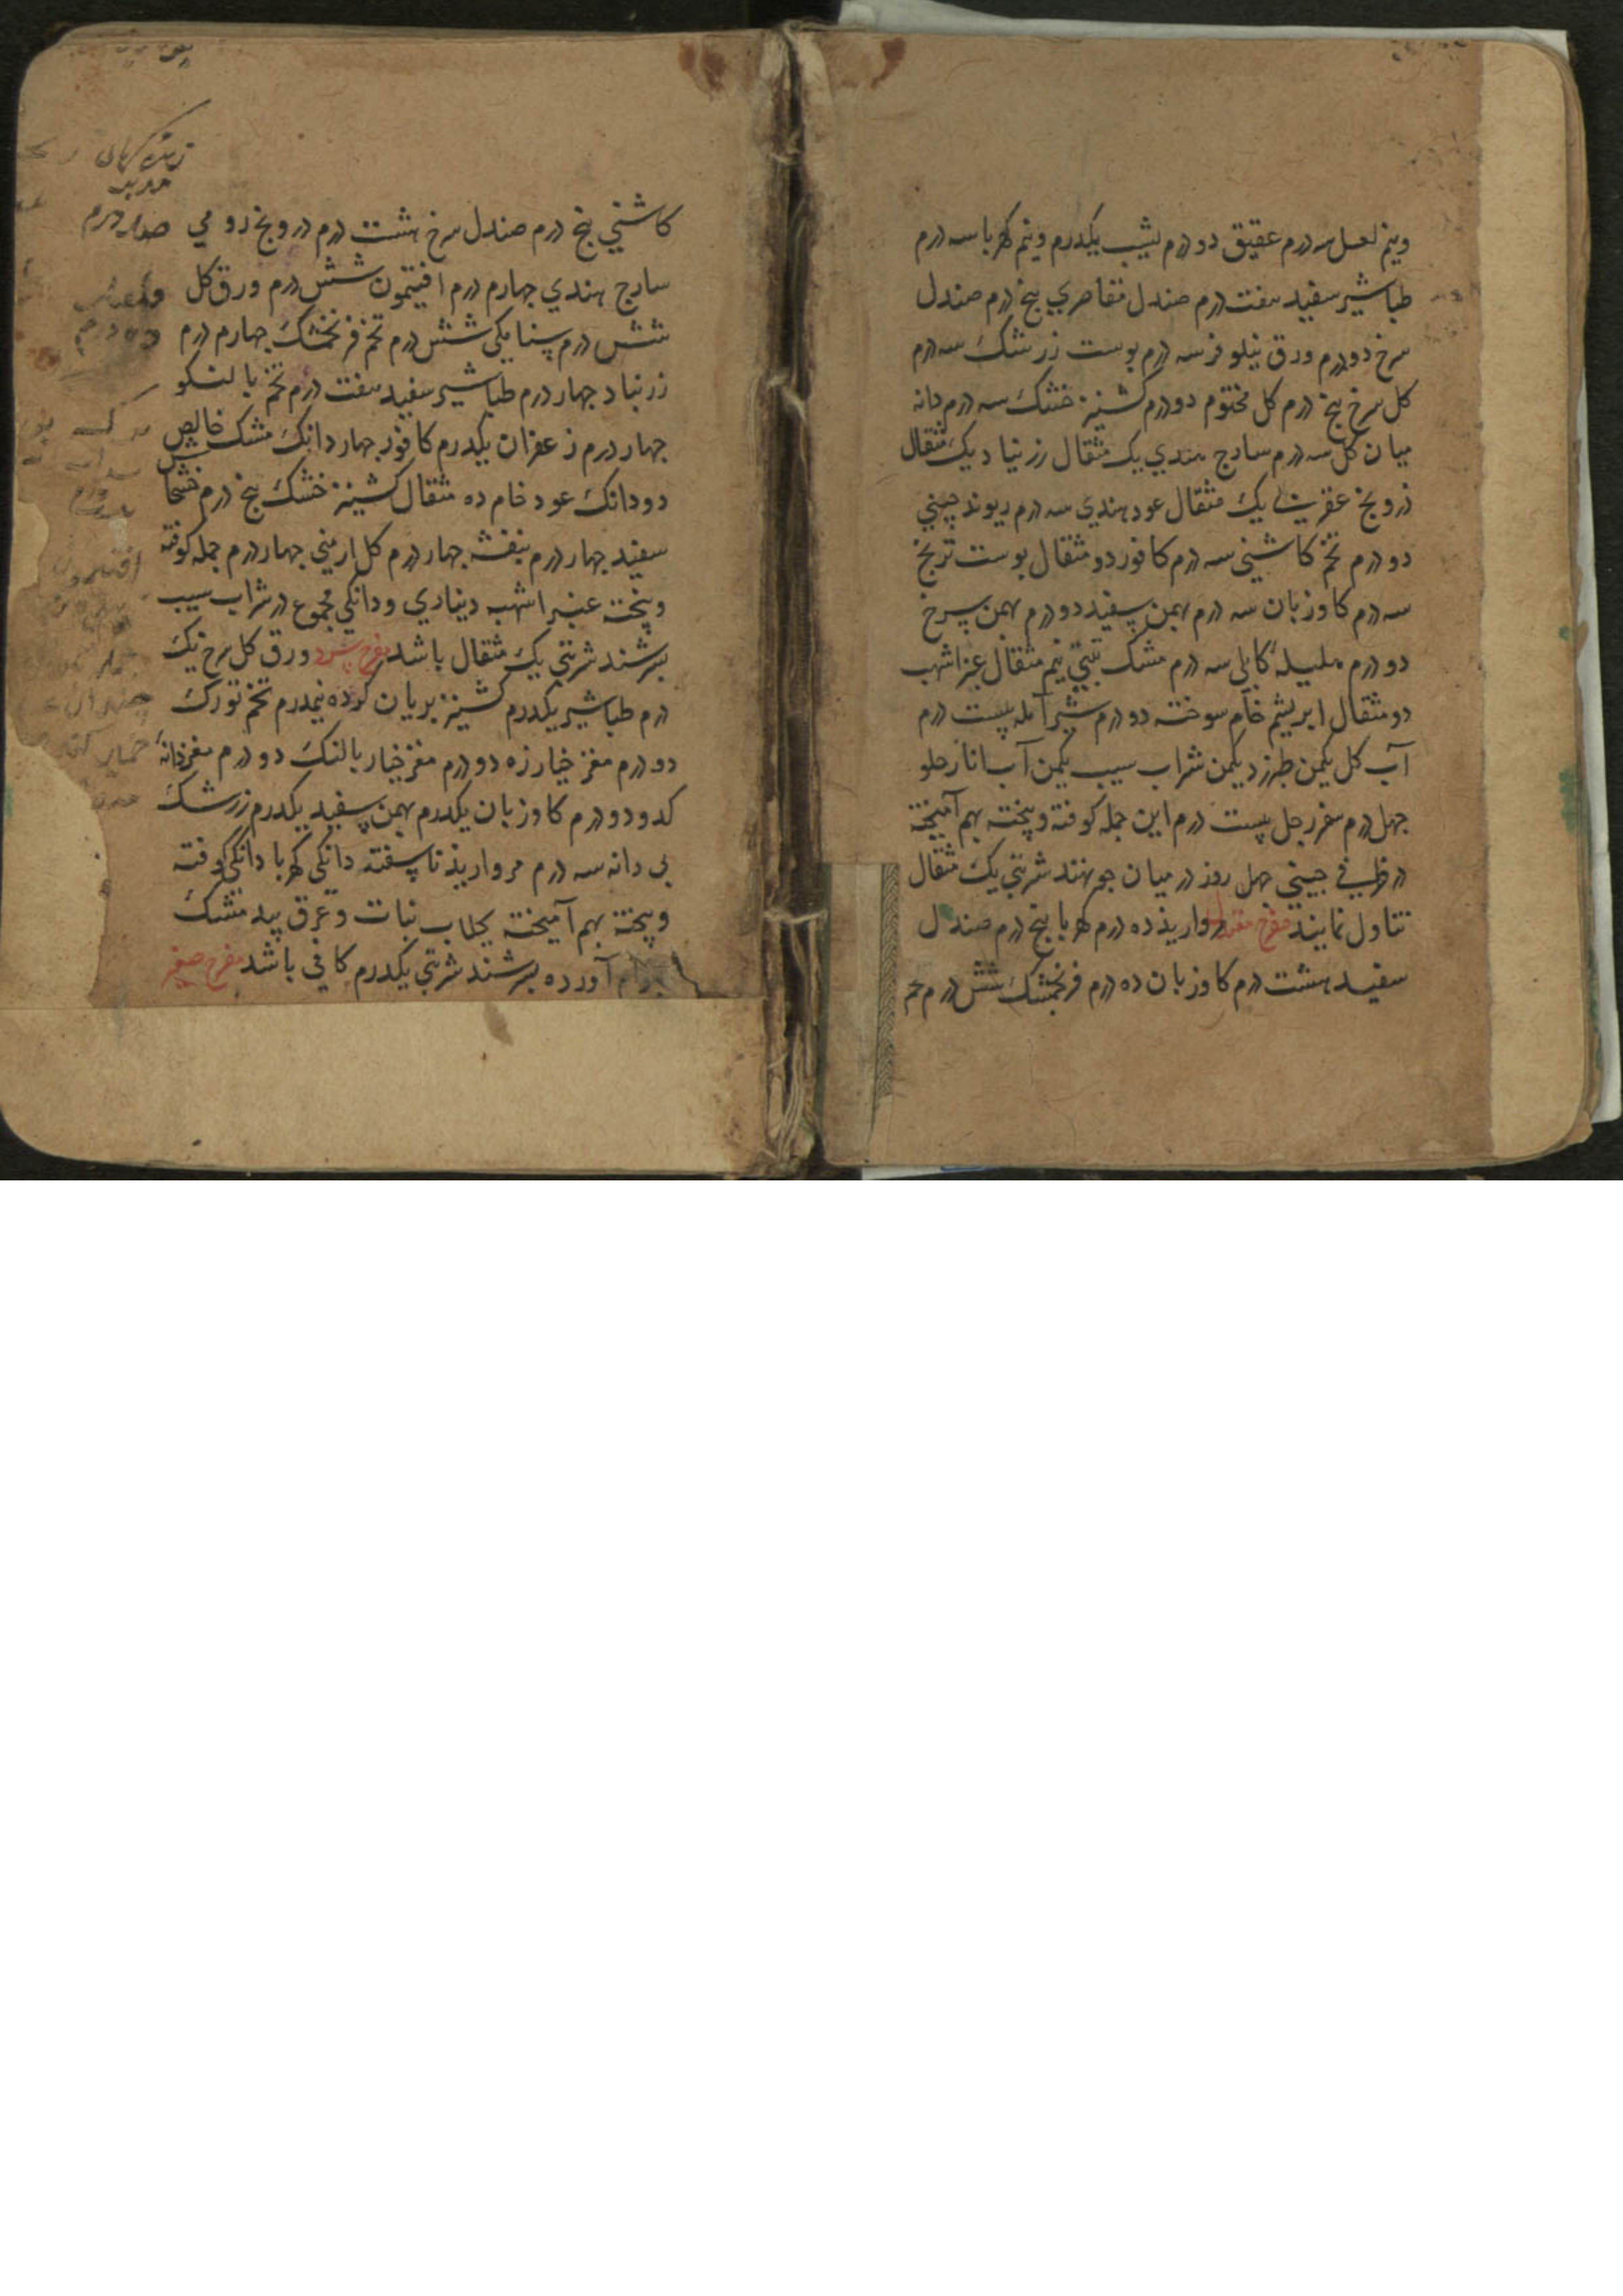 ونیم لعل سه درم عقیق دو درم یشب یکدرم ونیم کهربا سه درم
طباشیر سفید هفت درم صندل مقاصری پنج درم صندل
سرخ دو درم ورق نیلوفر سه درم پوست زرشک سه درم
کل سرخ پنج درم کل مختوم دو درم کشنیز خشک سه درم دانه
میان کل سه درم سادج هندی یک مثقال زرنباد یک مثقال
درونج عقربی یک مثقال عود هندی سه درم ریوند چینی
دو درم تخم کاشنی سه درم کافور دو مثقال پوست ترنج
سه درم کاوزبان سه درم بهمن سفید دو درم بهمن سرخ
دو درم هلیله کابلی سه درم مشک تبتی نیم مثقال عنبر اشهب
دو مثقال ابریشم خام سوخته دو درم شیر آمله بیست درم
آب کل یکمن طبرزد یکمن شراب سیب یکمن آب انار حلو
چهل درم سفرجل بیست درم این جمله کوفته وبیخته بهم آمیخته
در ظرفی چینی چهل روز در میان جو نهند شربتی یک مثقال
تناول نمایند مفرح معتدل مروارید ده درم کهربا پنج درم صندل
سفید هشت درم کاوزبان ده درم فرنجمشک شش درم تخم
کاشنی پنج درم صندل سرخ هشت درم درونج رومی
سادج هندی چهارم درم افتیمون شش درم ورق کل
شش درم سنا مکی شش درم تخم فرنجمشک چهارم درم
زرنباد چهار درم طباشیر سفید هفت درم تخم بالنکو
چهار درم زعفران یکدرم کافور چهار دانک مشک خالص
دو دانک عود خام ده مثقال کشنیز خشک پنج درم خشخاش
سفید چهار درم بنفشه چهار درم کل ارمنی چهار درم جمله کوفته
وبیخته عنبر اشهب دیناری ودانکی مجموع در شراب سیب
بسرشند شربتی یک مثقال باشد مفرح سرد ورق کل سرخ یک
درم طباشیر یکدرم کشنیز بریان کرده نیمدرم تخم تورک
دو درم مغز خیارزه دو درم مغز خیار بالنک دو درم مغز دانه
کدو دو درم کاوزبان یکدرم بهمن سفید یکدرم زرشک
بی دانه سه درم مروارید ناسفته دانکی کهربا دانکی کوفته
وبیخته بهم آمیخته بجلاب نبات وعرق بید مشک
آورده بسرشند شربتی یکدرم کافی باشد مفرح صغیر